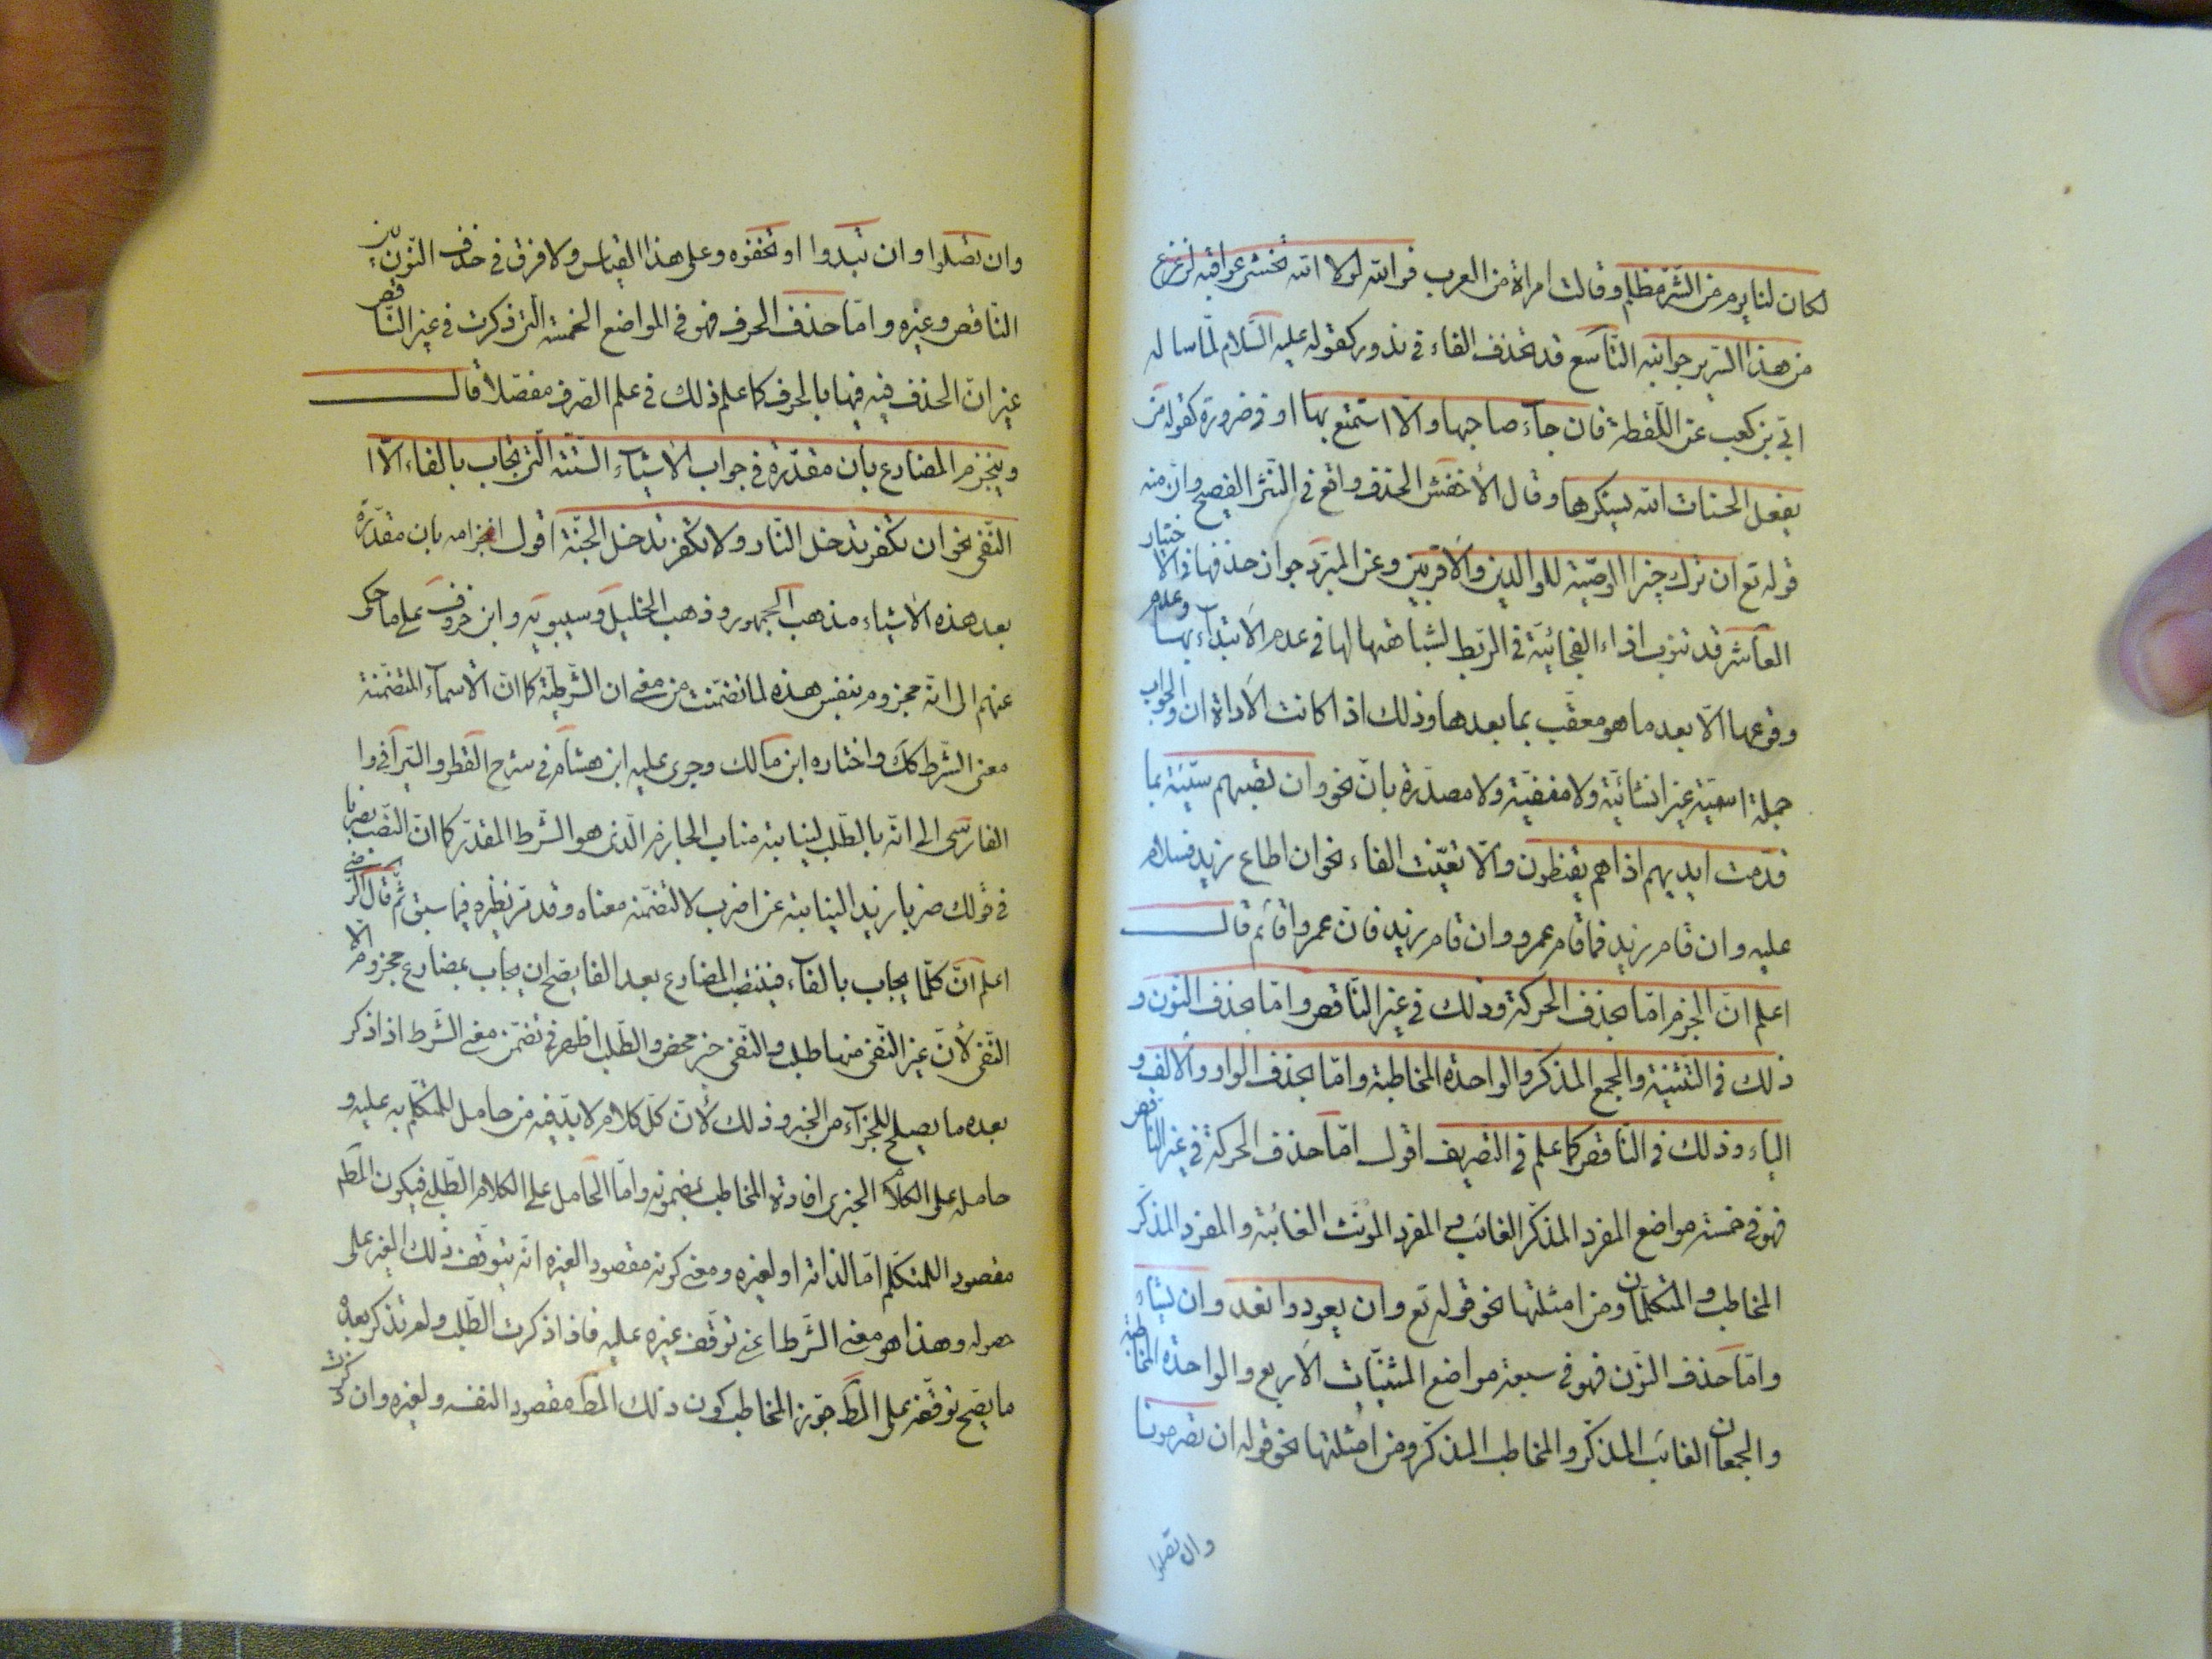 لكان لنا يوم من الشرّ مظلم وقالت امراة من العرب فوالله لولا الله تخشى عواقبه لزعزع
من هذا السرير جوانبه التاسع قد تحذف الفاء في ندور كقوله عليه السلام لمّا ساله
ابيّ بن كعب عن اللّقطة فان جاء صاحبها والّا استمتع بها او في ضرورة كقوله من
يفعل الحسنات الله يشكرها وقال الأخفش الحذف واقع في النّثر الفصيح وانّ منه
قوله تع ان ترك خيرا الوصيّة للوالدين والأقربين وعن المبرّد جواز حذفها في الاختيار
العاشر قد تنوب اذا الفجائيّة في الرّبط لشباهتها لها في عدم الابتداء بها وعدم
وقوعها الّا بعد ما هو معقّب بما بعدها وذلك اذا كانت الأداة ان والجواب
جملة اسميّة غير انشائيّة ولا منفيّة ولا مصدّرة بانّ نحو وان تصبهم سيّئة بما
قدّمت ايديهم اذا هم يقنطون والّا تعيّنت الفاء نحو ان اطاع زيد فسلام
عليه وان قام زيد فما قام عمرو وان قام زيد فانّ عمروا قائم قال
اعلم انّ الجزم امّا بحذف الحركة وذلك في غير النّاقص وامّا بحذف النّون و
ذلك في التّثنية والجمع المذكّر والواحدة المخاطبة وامّا بحذف الواو والألف و
الياء وذلك في النّاقص كما علم في التّصريف اقول امّا حذف الحركة في غير النّاقص
فهو في خمسة مواضع المفرد المذكّر الغائب والمفرد المؤنّث الغائبة والمفرد المذكّر
المخاطب والمتكلّمان ومن امثلتها نحو قوله تع وان يعودوا نعد وان يشاء
وامّا حذف النّون فهو في سبعة مواضع المثنّيات الأربع والواحدة المخاطبة
والجمعان الغائب المذكّر والمخاطب المذكّر ومن امثلتها نحو قوله ان تصرمونا
وان تصلوا
وان تصلوا وان تبدوا او تخفوه وعلى هذا القياس ولا فرق في حذف النّون بين
النّاقص وغيره وامّا حذف الحرف فهو في المواضع الخمسة الّتي ذكرت في غير النّاقص
غير انّ الحذف فيه فيها بالحرف كما علم ذلك في علم الصّرف مفصّلا قال
وينجزم المضارع بان مقدّرة في جواب الأشياء السّتّة الّتي تجاب بالفاء الّا
النّفي نحو ان تكفر تدخل النّار ولا تكفر تدخل الجنّة اقول انجزامه بان مقدّرة
بعد هذه الأشياء مذهب الجمهور وذهب الخليل وسيبويه وابن خروف على ما حكى
عنهم الى انّه مجزوم بنفس هذه لما تضمّنت من معنى ان الشّرطيّة كما انّ الأسماء المتضمّنة
معنى الشّرط كك واختاره ابن مالك وجرى عليه ابن هشام في شرح القطر والسّيرافي وا
الفارسى الى انّه بالطّلب لنيابته مناب الجازم الّذى هو الشّرط المقدّر كما انّ النّصب بضربا
في قولك ضربا زيدا لنيابته عن اضرب لا لتضمّنه معناه وقد مرّ نظيره فيما سبق ثمّ قال الرّضى
اعلم انّ كلّما يجاب بالفاء فينتصب المضارع بعد الفا يصحّ ان يجاب بمضارع مجزوم الّا
النّفى لأنّ غير النّفى منها طلب والنّفى خبر محض والطّلب اظهر في تضمّن معنى الشّرط اذا ذكر
بعده ما يصلح للجزاء من الخبر وذلك لأنّ كلّ كلام لا بدّ فيه من حامل للمتكلّم به عليه و
حامله على الكلام الخبرى افادة المخاطب بمضمونه وامّا الحامل على الكلام الطّلبى فيكون المط
مقصود اللمتكلّم امّا لذاته او لغيره ومعنى كونه مقصودا لغيره انّه يتوقّف ذلك الغير على
حصوله وهذا هو معنى الشّرط اعنى توقّف غيره عليه فاذا ذكرت الطّلب ولم تذكر بعده
ما يصحّ توقّفه على المط جوّز المخاطب كون ذلك المط مقصودا لنفسه ولغيره وان ذكرت